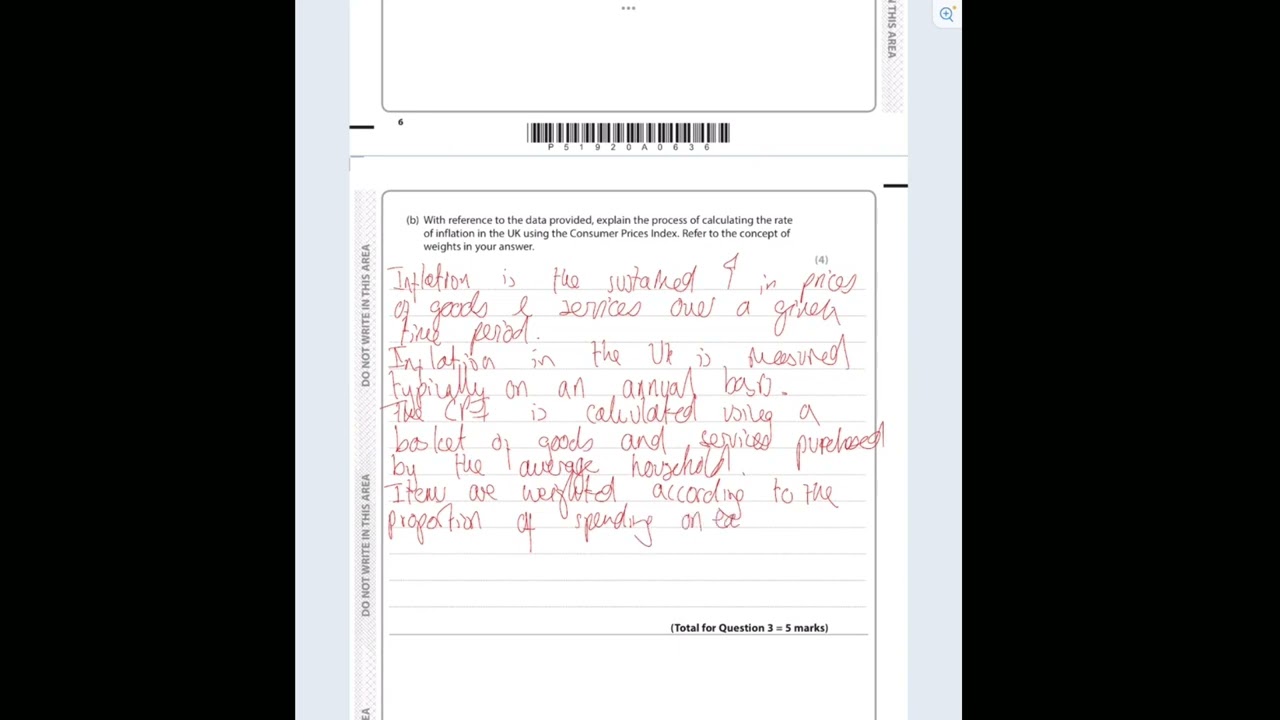 ...
N THIS AREA
6
P51920A0636
DO NOT WRITE IN THIS AREA
DO NOT WRITE IN THIS AREA
EA
(b) With reference to the data provided, explain the process of calculating the rate
of inflation in the UK using the Consumer Prices Index. Refer to the concept of
weights in your answer.
(4)
Inflation is the sustained ↑ in prices
of goods & services over a given
time period.
Inflation in the UK is measured
typically on an annual basis.
The CPI is calculated using a
basket of goods and services purchased
by the average household.
Items are weighted according to the
proportion of spending on ea
(Total for Question 3 = 5 marks)